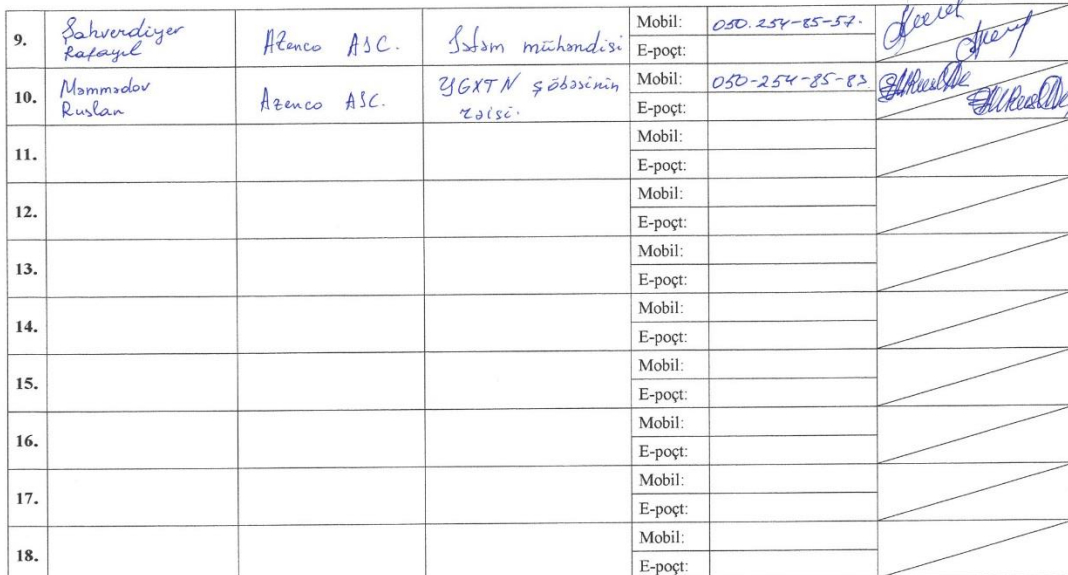 9. Şahverdiyev Rafayıl Azenco ASC. İstəm mühəndisi Mobil: 050.254-85-57.
E-poçt:
10. Məmmədov Ruslan Azenco ASC. YGXTN şöbəsinin rəisi. Mobil: 050-254-85-83.
E-poçt:
11. Mobil:
E-poçt:
12. Mobil:
E-poçt:
13. Mobil:
E-poçt:
14. Mobil:
E-poçt:
15. Mobil:
E-poçt:
16. Mobil:
E-poçt:
17. Mobil:
E-poçt:
18. Mobil:
E-poçt: